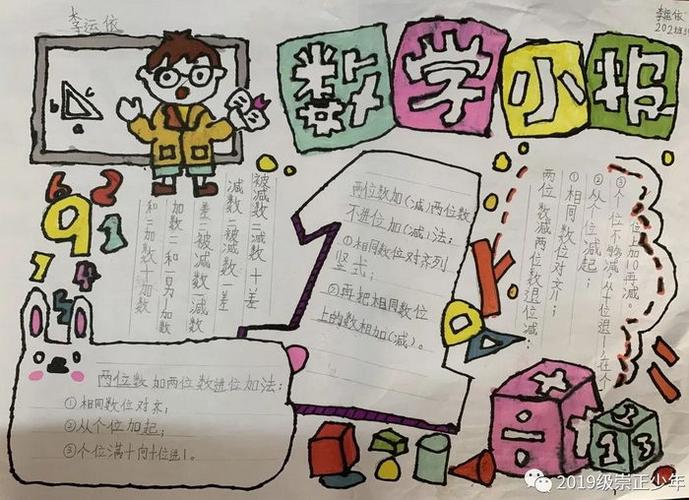 李运依
李运依
数学小报
被减数=减数+差
减数=被减数-差
差=被减数-减数
加数=和-另一加数
和=加数+加数
两位数加(减)两位数
不进位加(减)法:
①相同数位对齐列
竖式;
②再把相同数位
上的数相加(减)。
两位数减两位数退位减:
①相同数位对齐;
②从个位减起;
③个位不够减,从十位退1,在个
位上加10再减。
两位数加两位数进位加法:
①相同数位对齐;
②从个位加起;
③个位满十向十位进1。
2019级崇正少年